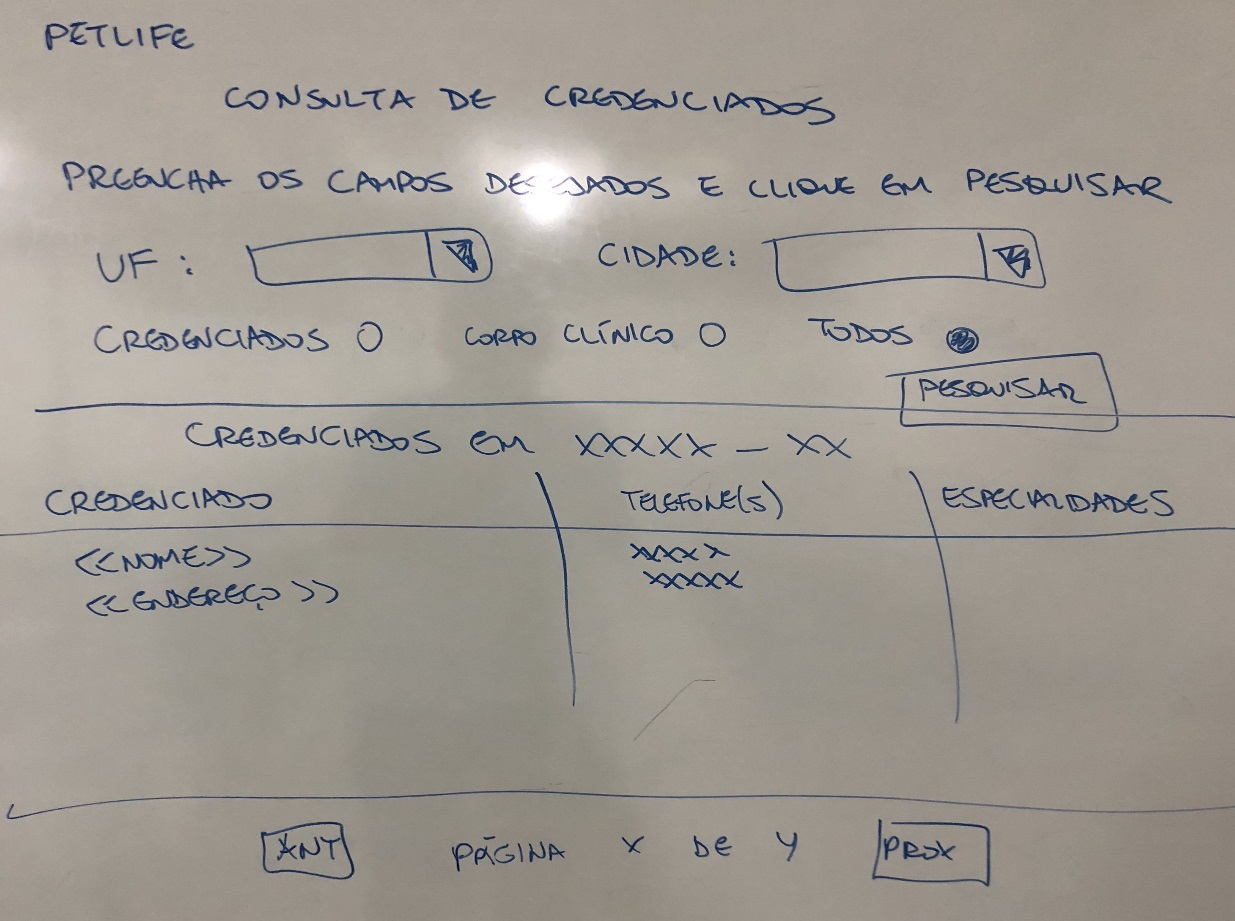 PETLIFE
CONSULTA DE CREDENCIADOS
PREENCHA OS CAMPOS DESEJADOS E CLIQUE EM PESQUISAR
UF: CIDADE:
CREDENCIADOS O CORPO CLÍNICO O TODOS
PESQUISAR
CREDENCIADOS EM XXXXX - XX
CREDENCIADO TELEFONE(S) ESPECIALIDADES
<<NOME>> XXXXX
<<ENDEREÇO>> XXXXX
ANT PÁGINA X DE Y PROX